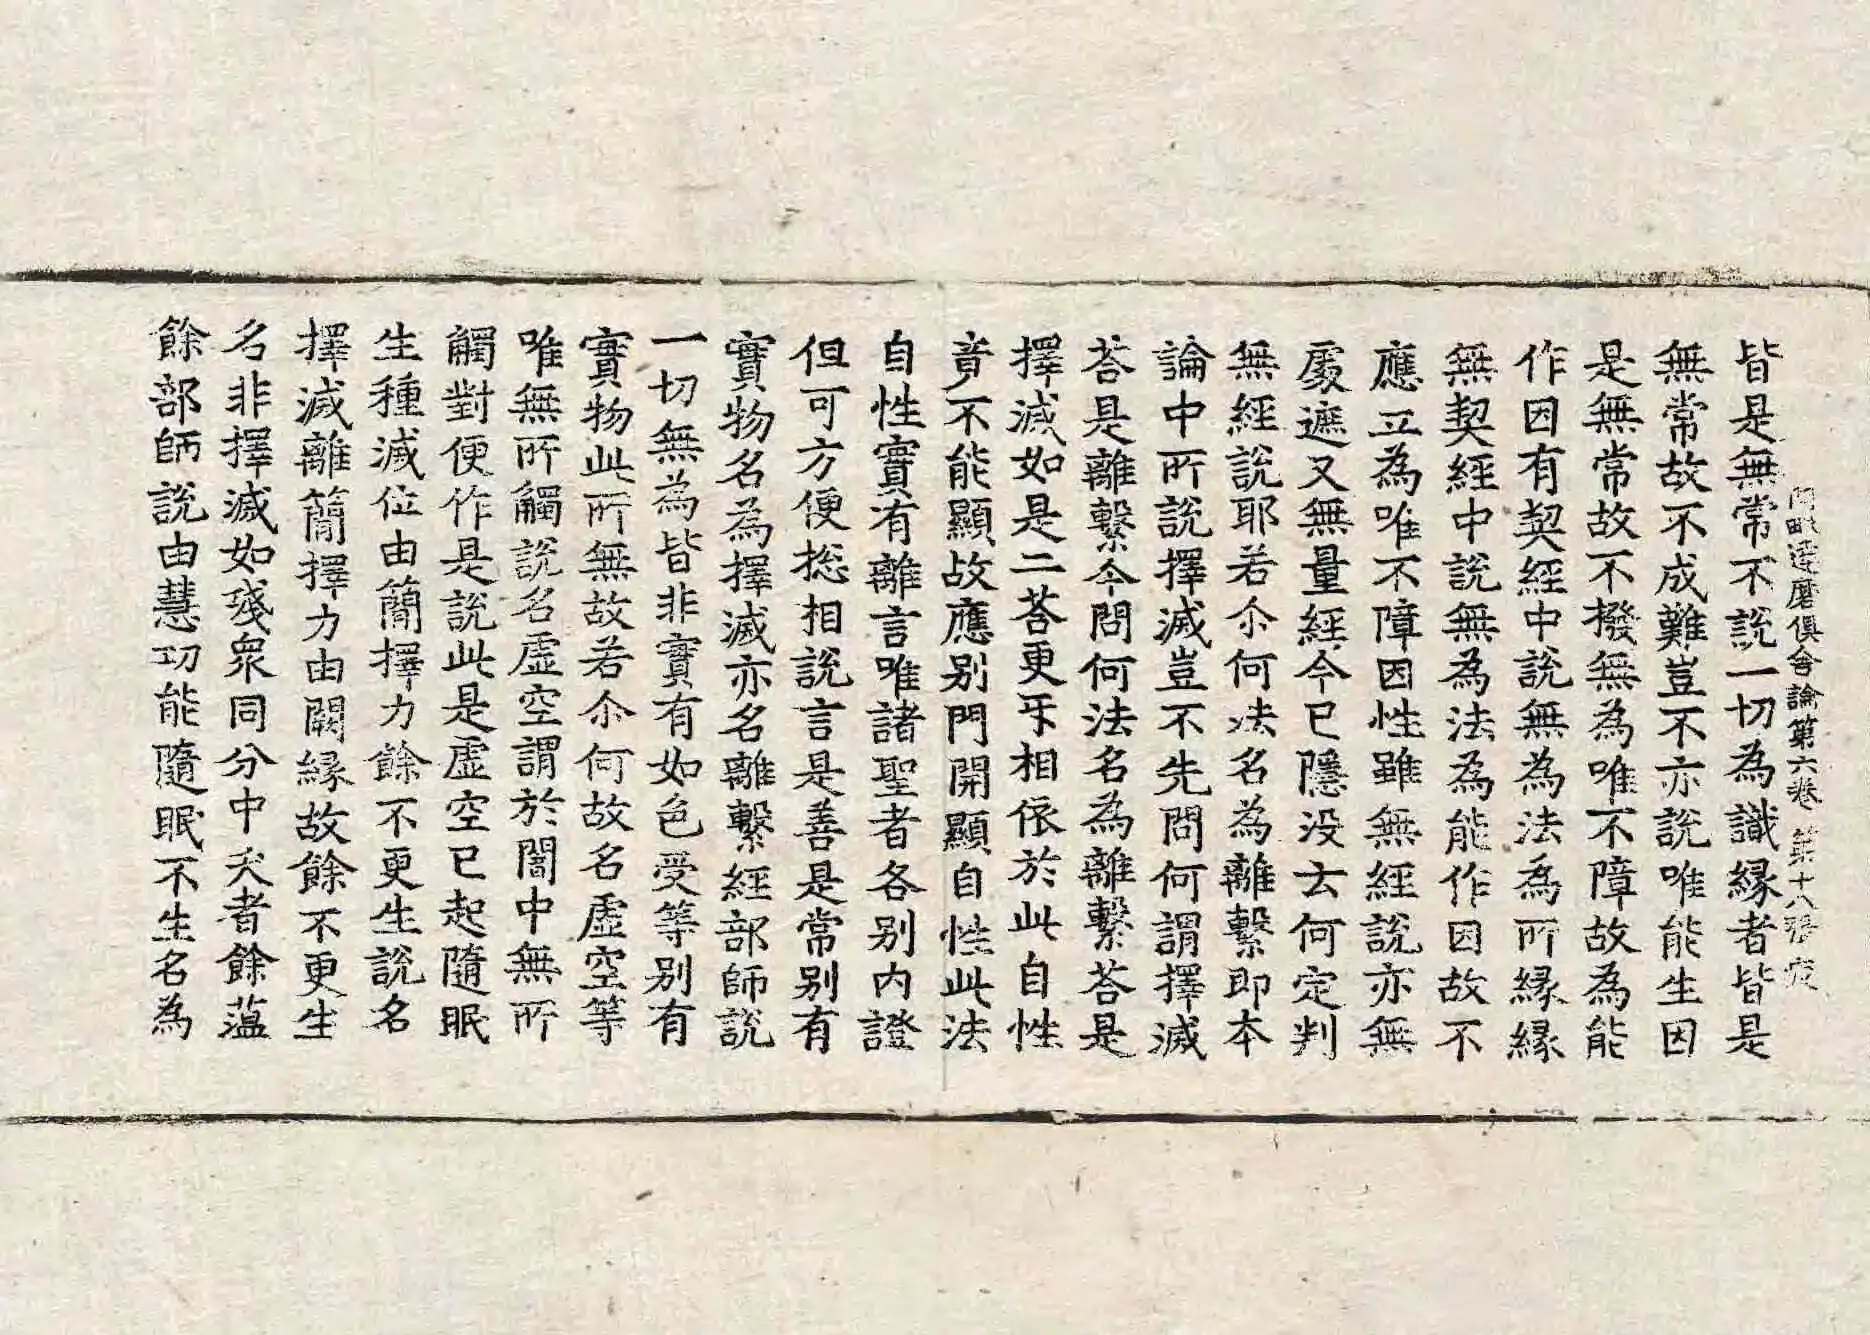 阿毗達磨俱舍論第六卷 第十八張 疲
皆是無常不說一切為識縁者皆是
無常故不成難豈不亦說唯能生因
是無常故不撥無為唯不障故為能
作因有契經中說無為法為所縁縁
無契經中說無為法為能作因故不
應立為唯不障因性雖無經說亦無
處遮又無量經今已隱没云何定判
無經說耶若尒何法名為離繫即本
論中所說擇滅豈不先問何謂擇滅
荅是離繫今問何法名為離繫荅是
擇滅如是二荅更㸦相依於此自性
竟不能顯故應別門開顯自性此法
自性實有離言唯諸聖者各別內證
但可方便捴相說言是善是常別有
實物名為擇滅亦名離繫經部師說
一切無為皆非實有如色受等別有
實物此所無故若尒何故名虛空等
唯無所觸說名虛空謂於闇中無所
觸對便作是說此是虛空已起隨眠
生種滅位由簡擇力餘不更生說名
擇滅離簡擇力由闕縁故餘不更生
名非擇滅如殘眾同分中夭者餘蕰
餘部師說由慧功能隨眠不生名為